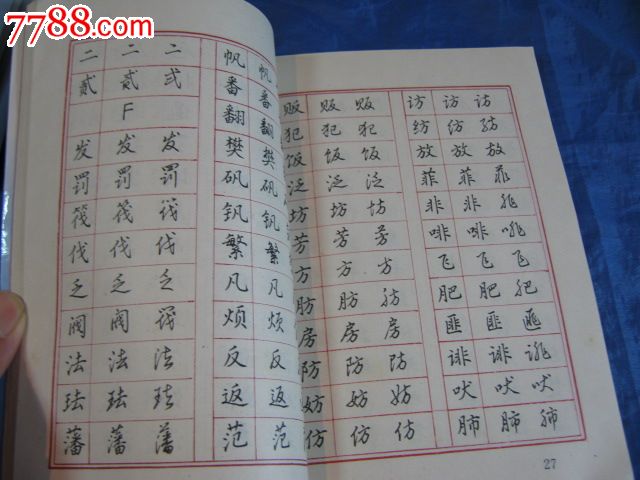 7788.com
二 二 二
贰 贰 弍
F
发 发 发
罚 罚 罚
筏 筏 筏
伐 伐 伐
乏 乏 乏
阀 阀 阀
法 法 法
珐 珐 珐
藩 藩 藩
帆 帆
番 番
翻 翻
樊 樊
矾 矾
钒 钒
繁 繁
凡 凡
烦 烦
反 反
返 返
范 范
贩 贩 贩
犯 犯 犯
饭 饭 饭
泛 泛 泛
坊 坊 坊
芳 芳 芳
方 方 方
肪 肪 肪
房 房 房
防 防 防
妨 妨 妨
仿 仿 仿
访 访 访
纺 纺 纺
放 放 放
菲 菲 菲
非 非 非
啡 啡 啡
飞 飞 飞
肥 肥 肥
匪 匪 匪
诽 诽 诽
吠 吠 吠
肺 肺 肺
27